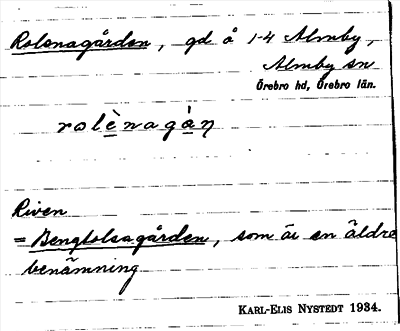 Rolenagården, gd å 1-4 Almby,
Almby sn
Örebro hd, Örebro län.
rolènagàṇ
Riven
= Bengtolsagården, som är en äldre
benämning
KARL-ELIS NYSTEDT 1934.